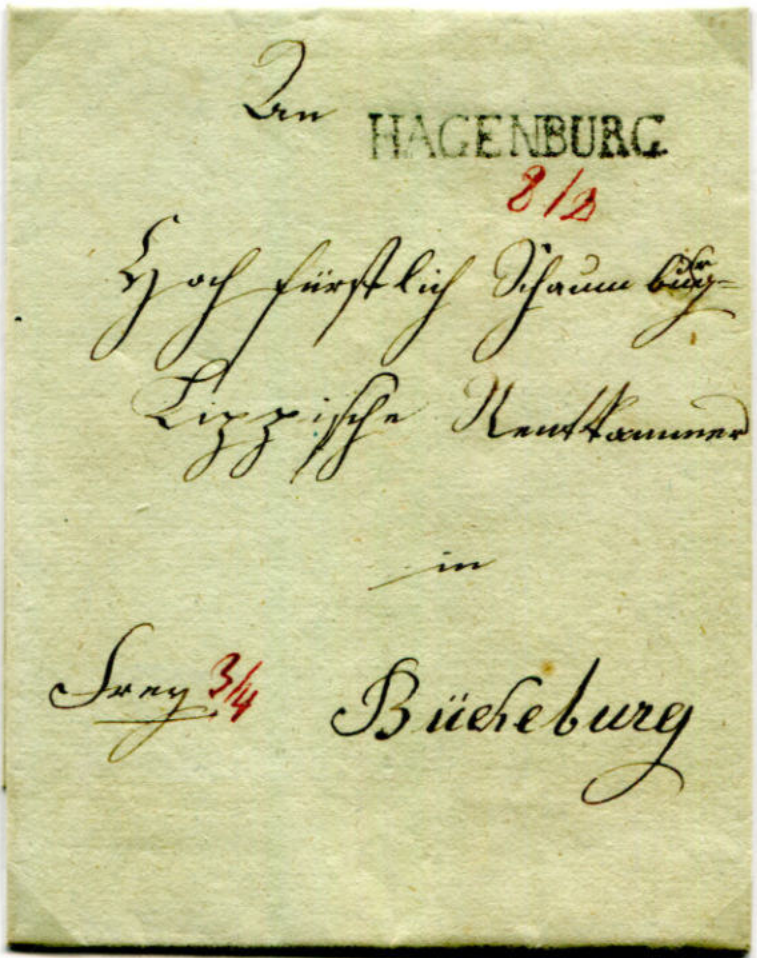 An HAGENBURG
8/2
Hoch fürstlich Schaumburg=
Lippische Rentkammer
in
Frey 3/4 Bückeburg